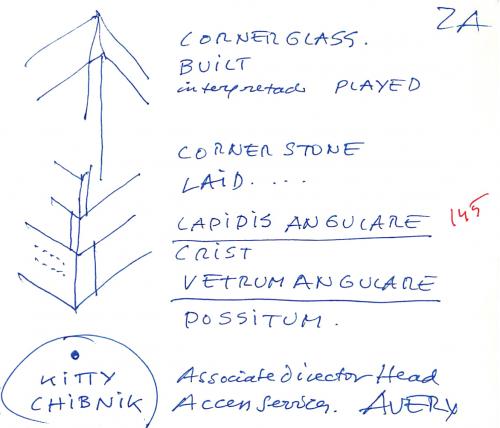 2A
CORNERGLASS.
BUILT
interpretad PLAYED
CORNER STONE
LAID....
LAPIDIS ANGULARE
145
CRIST
VETRUM ANGULARE
POSSITUM.
KITTY
CHIBNIK
Associate director Head
Accen services. AVERY